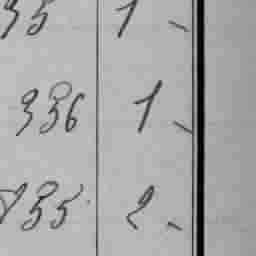 35 1 -
336 1 -
135 2 -